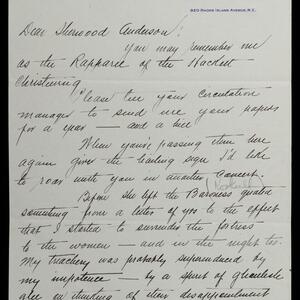 920 RHODE ISLAND AVENUE, N.E.
Dear Sherwood Anderson:
You may remember me
as the Rapparee of the Hackett
Christening.
Please tell your circulation
manager to send me your papers
for a year — and a bill
When you're passing thru here
again give the hailing sign I'd like
to roar with you in another concert.
Before she left the Baroness quoted
something from a letter of yours to the effect
that I started to surrender the fortress
to the women — and in the night too.
My treachery was probably superinduced by
my impotence — by a spirit of
glee in thinking of their disappointment